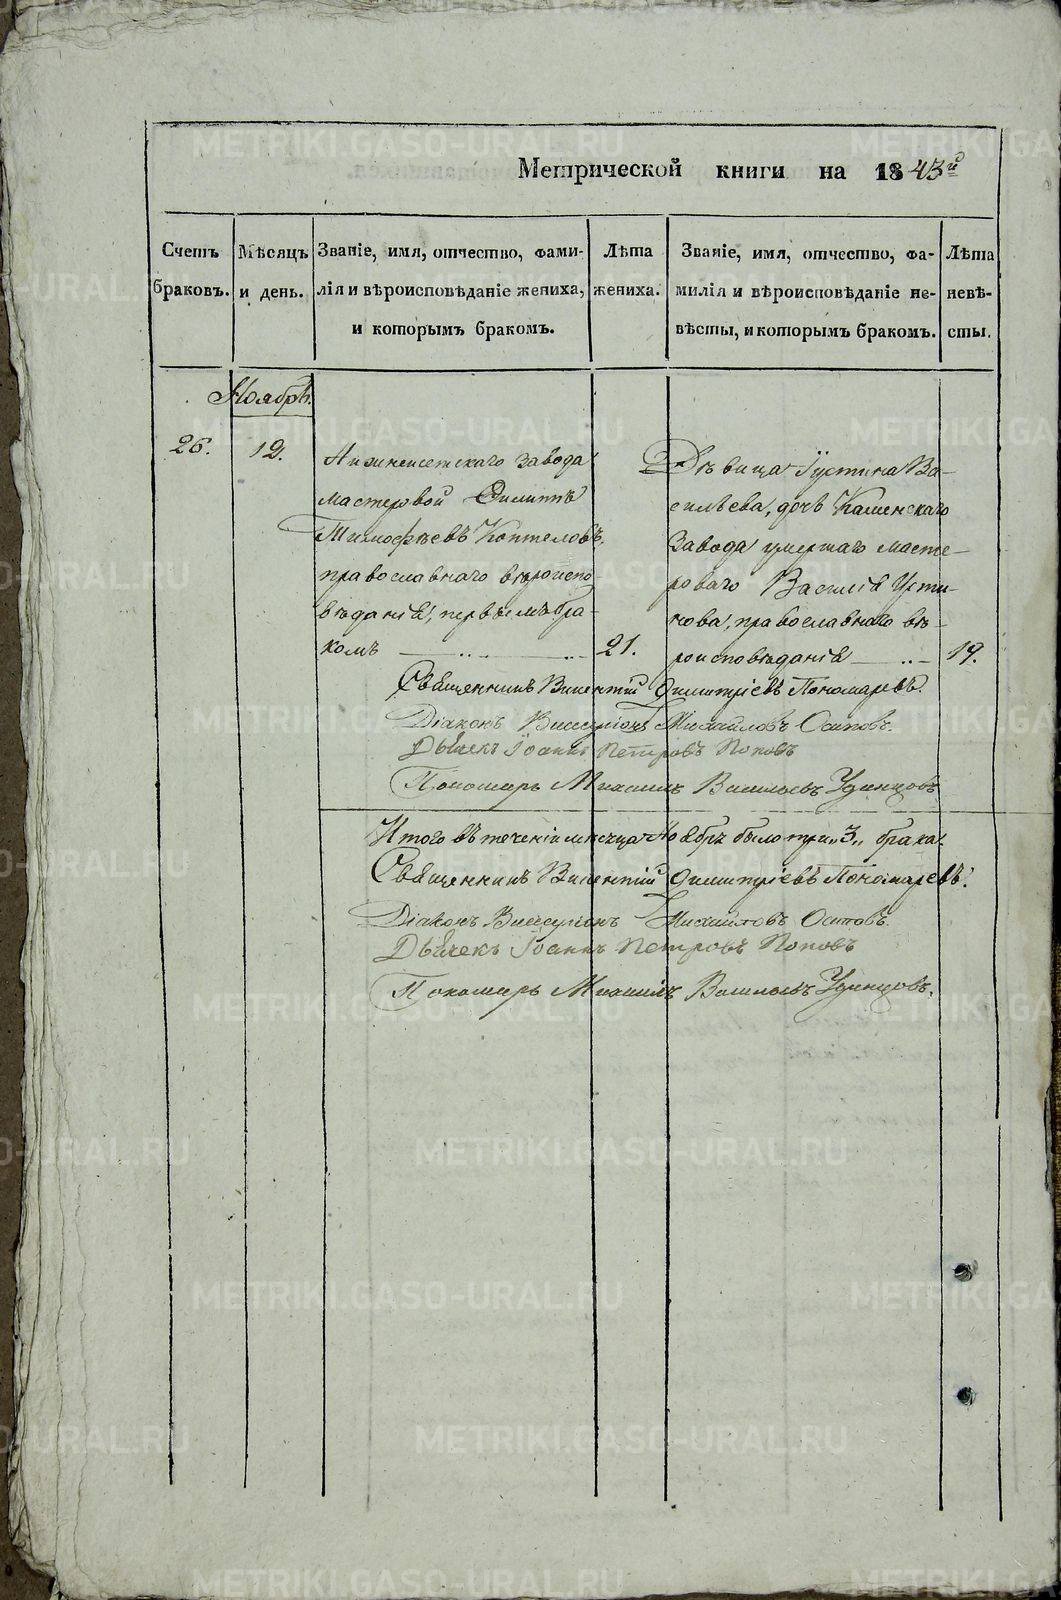 Метрической книги на 1843й
Счетъ браковъ.
Мѣсяцъ и день.
Званіе, имя, отчество, фами-
лія и вѣроисповѣданіе жениха,
и которымъ бракомъ.
Лѣта
жениха.
Званіе, имя, отчество, фа-
милія и вѣроисповѣданіе не-
вѣсты, и которымъ бракомъ.
Лѣта
невѣ-
сты.
Ноябрь.
26.
12.
Нижнеисетскаго завода
мастеровой Филиппъ
Тимофѣевъ Коптеловъ,
православнаго вѣроиспо
вѣданія, первымъ бра-
комъ
21.
Дѣвица Іустина Ва-
сильева, дочь Каменскаго
завода умершаго масте-
роваго Василія Усти-
нова, православнаго вѣ-
роисповѣданія
19.
Священникъ Викентій Димитріевъ Пономаревъ.
Діаконъ Виссаріонъ Михайловъ Осиповъ.
Дьячекъ Іоаннъ Петровъ Поповъ
Пономарь Михаилъ Васильевъ Удинцовъ
Итого въ теченіи месяца Ноября было три „3„ брака.
Священникъ Викентій Димитріевъ Пономаревъ.
Діаконъ Виссаріонъ Михайловъ Осиповъ.
Дьячекъ Іоаннъ Петровъ Поповъ
Пономарь Михаилъ Васильевъ Удинцовъ.
METRIKI.GASO-URAL.RU